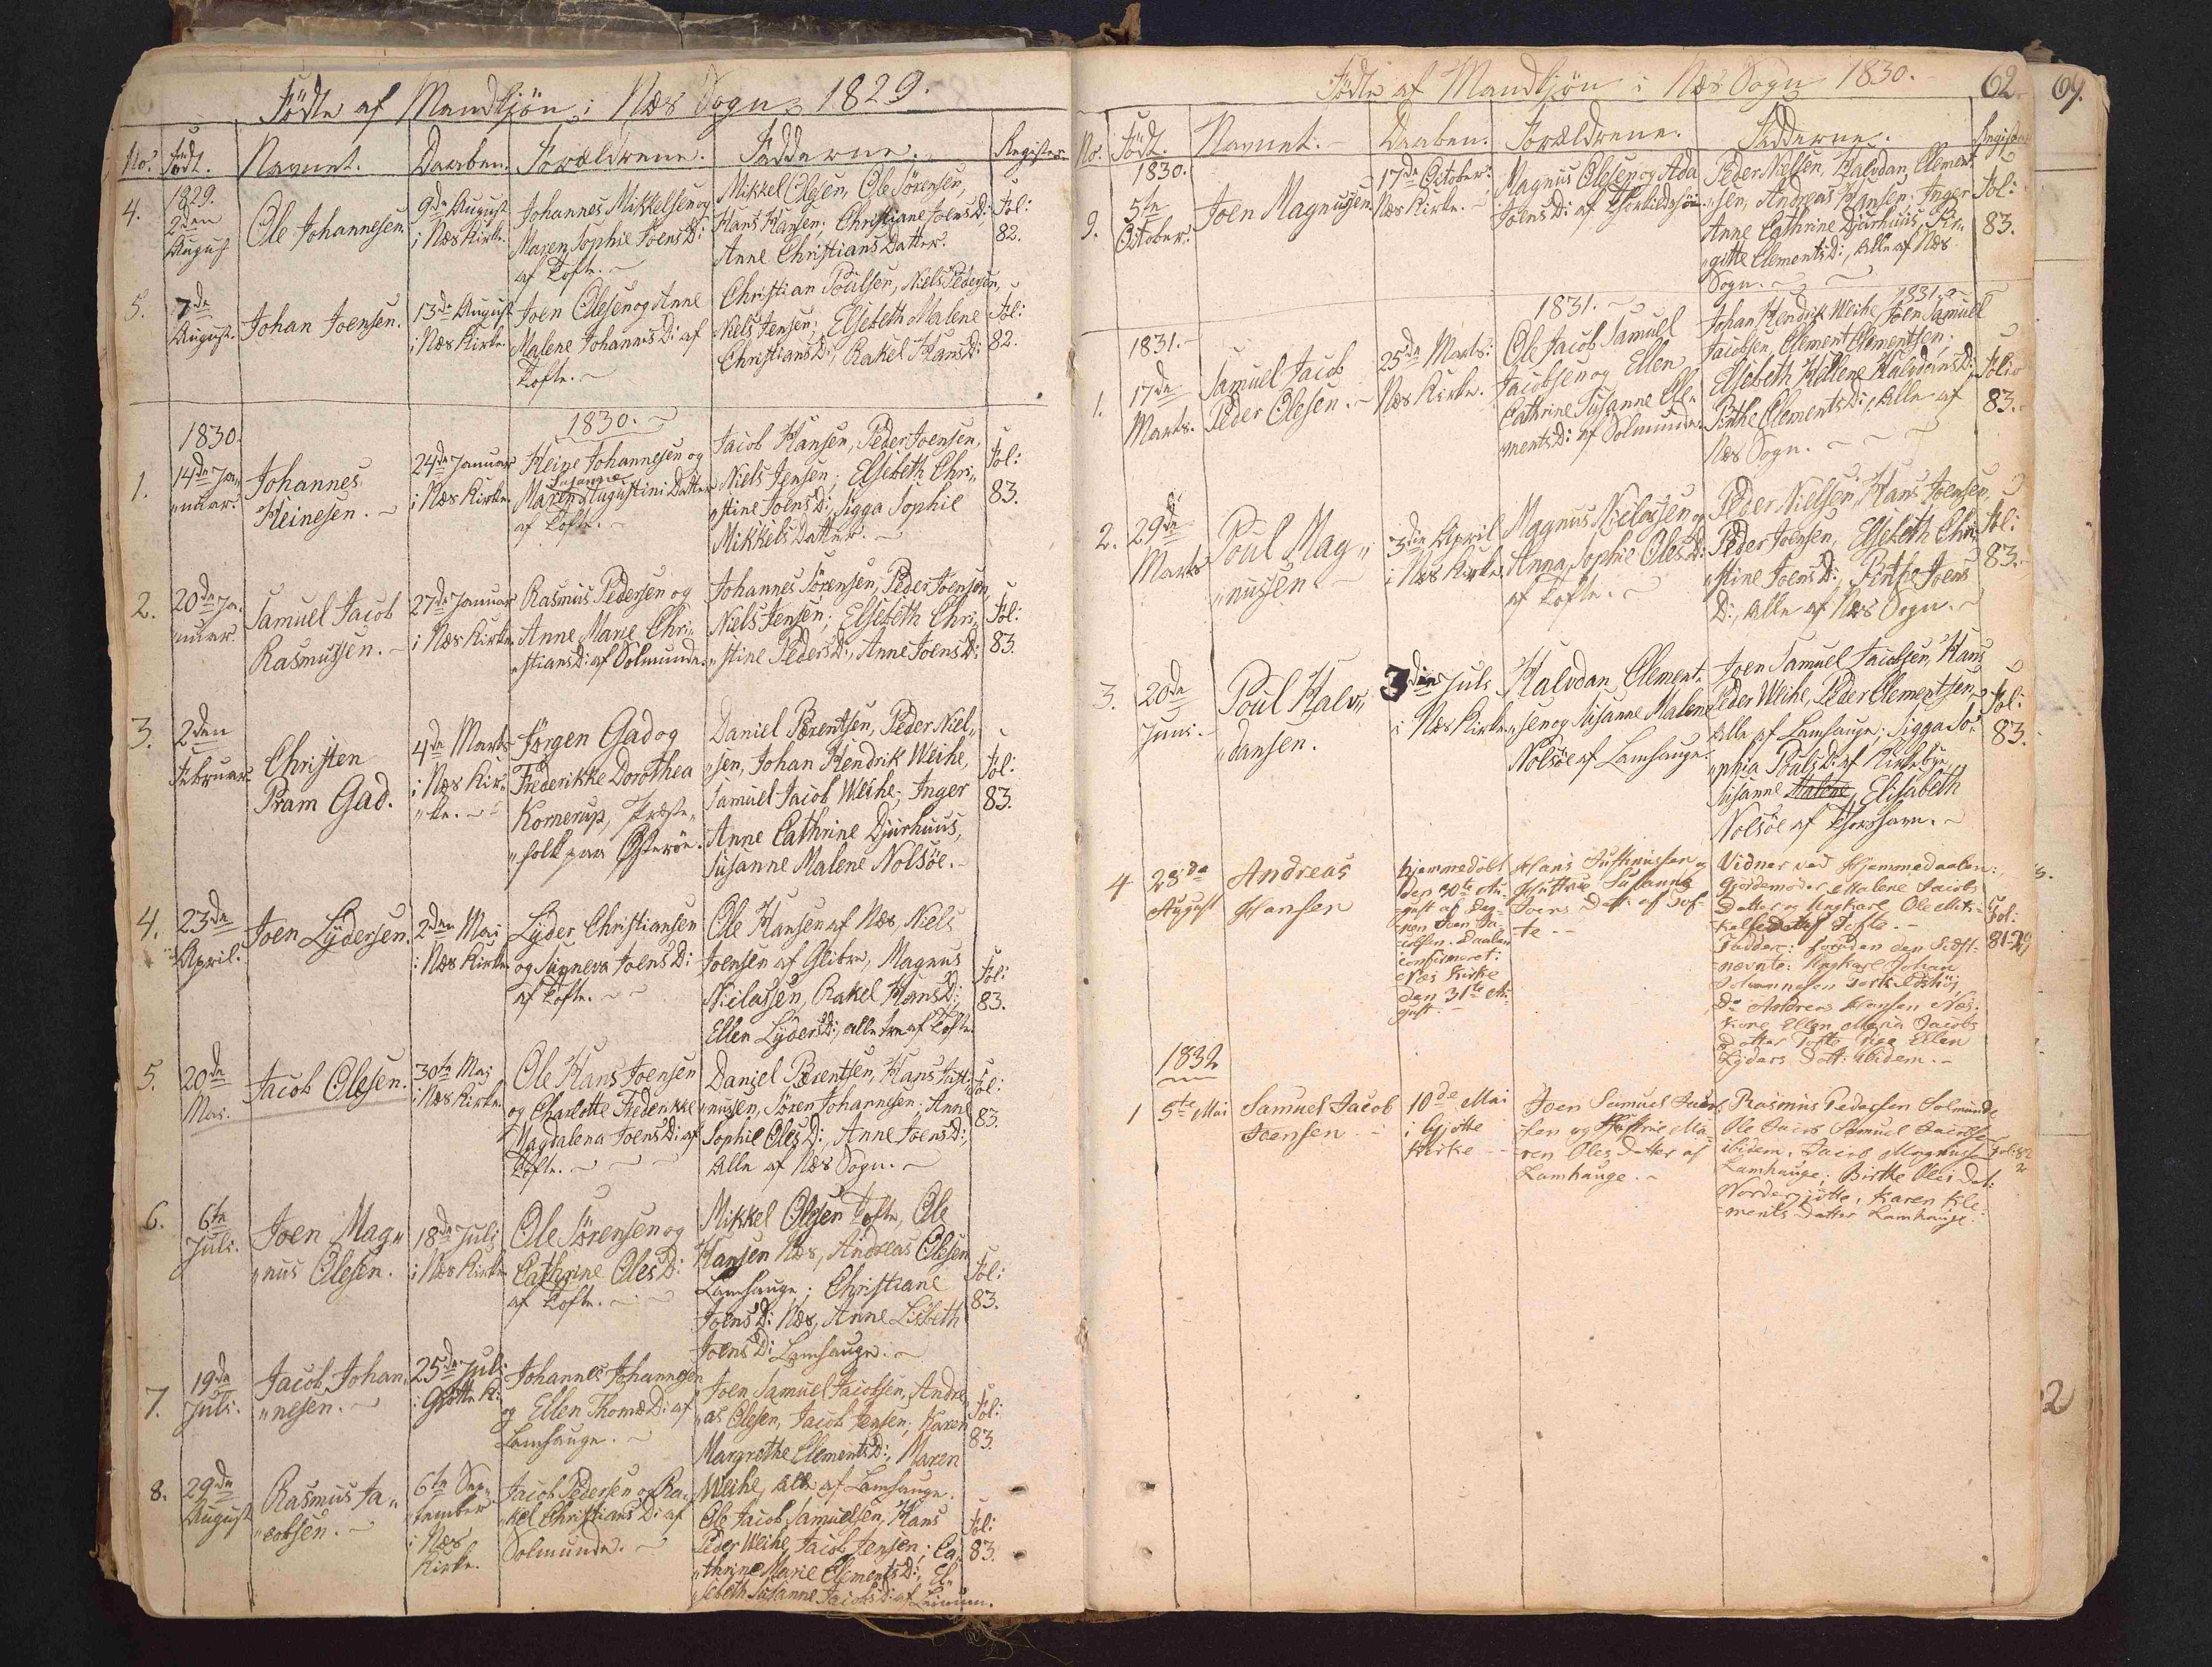 Fødte af Mandkjøn i Næs Sogn 1829.
No. Født. Navnet. Daaben. Forældrene. Fadderne. Register
4.
1829.
2den
August
Ole Johannesen.
9de August
i Næs Kirke.
Johannes Mikkelsen og
Maren Sophie Joens D:
af Tofte.
Mikkel Olesen, Ole Sörensen,
Hans Hansen; Christiane Joens D:,
Anne Christians Datter.
Fol:
82.
5.
7de
August.
Johan Joensen.
13de August
i Næs Kirke
Joen Olesen og Anne
Malene Johannes D: af
Tofte.
Christian Poulsen, Niels Pedersen,
Niels Jensen; Elsebeth Malene
Christians D:, Rakel Hans D:
Fol:
82.
1830.
1830.
1.
14de Ja„
„nuar.
Johannes
Heinesen.
24de Januar
i Næs Kirke.
Heine Johannesen og
Susanne
Maren Augustini Datter
af Tofte.
Jacob Hansen, Peder Joensen,
Niels Jensen; Elsebeth Chri„
„stine Joens D:, Sigga Sophie
Mikkels Datter.
Fol:
83.
2.
20de Ja„
„nuar.
Samuel Jacob
Rasmussen.
27de Januar
i Næs Kirke.
Rasmus Pedersen og
Anne Marie Chri„
„stians D: af Solmunde.
Johannes Sörensen, Peder Joensen,
Niels Jensen; Elsebeth Chri„
„stine Peders D:, Anne Joens D:
Fol:
83.
3.
2den
Februar
Christen
Pram Gad.
4de Marts
i Næs Kir„
„ke.
Jørgen Gad og
Frederikke Dorothea
Kornerup, Præste„
„folk paa Østerøe.
Daniel Bærentsen, Peder Niel„
„sen, Johan Hendrik Weihe,
Samuel Jacob Weihe; Inger
Anne Cathrine Djurhuus,
Susanne Malene Nolsöe.
Fol:
83.
4.
23de
April.
Joen Lydersen.
2den Mai
i Næs Kirke
Lyder Christiansen
og Sunneva Joens D:
af Tofte.
Ole Hansen af Næs, Niels
Joensen af Glibre, Magnus
Nicklassen, Rakel Hans D:,
Ellen Lyders D:, alle tre af Tofte.
Fol:
83.
5.
20de
Mai.
Jacob Olesen.
30te Mai
i Næs Kirke.
Ole Hans Joensen
og Charlotte Frederikke
Magdalena Joens D: af
Tofte.
Daniel Bærentsen, Hans Just„
„nussen, Sören Johannesen. Anne
Sophie Oles D:, Anne Joens D:,
Alle af Næs Sogn.
Fol:
83.
6.
6te
Juli.
Joen Mag„
„nus Olesen.
18de Juli
i Næs Kirke
Ole Sörensen og
Cathrine Oles D:
af Tofte.
Mikkel Olesen Tofte, Ole
Hansen Næs, Andreas Olesen
Lamhauge; Christiane
Joens D: Næs, Anne Lisbeth
Joens D: Lamhauge.
Fol:
83.
7.
19de
Juli.
Jacob Johan„
„nesen.
25de Juli
i Gjötte K:
Johannes Johannesen
og Ellen Thomæ D: af
Lamhauge.
Joen Samuel Jacobsen, Andre„
„as Olesen, Jacob Jensen; Karen
Margrethe Clements D:, Maren
Weihe, Alle af Lamhauge.
Fol:
83.
8.
29de
August
Rasmus Ja„
„cobsen.
6te Sep„
„tember
i Næs
Kirke.
Jacob Pedersen og Ra„
„kel Christians D: af
Solmunde.
Ole Jacob Samuelsen, Hans
Peder Weihe, Jacob Jensen; Ca„
„thrine Marie Clements D:, El„
„sebeth Susanne Jacobs D: af
Fol:
83.
Fødte af Mandkjön i Næs Sogn 1830.
62.
69.
No. Født. Navnet. Daaben. Forældrene. Fadderne. Register
9.
1830.
5te
October.
Joen Magnussen
17de October.
Næs Kirke.
Magnus Olesen og Ada
Joens D: af
Peder Nielsen, Halvdan Clement„
„sen, Andreas Hansen; Inger
Anne Cathrine Djurhuus, Bir„
„gitte Clements D:, Alle af Næs
Sogn.
Fol:
83.
1831.
1831.
1831.
1.
17de
Marts.
Samuel Jacob
Peder Olesen.
25de Marts:
Næs Kirke.
Ole Jacob Samuel
Jacobsen og Ellen
Cathrine Susanne Cle„
„ments D: af Solmunde.
Johan Hendrik Weihe, Joen Samuel
Jacobsen, Clement Clementsen;
Elsebeth Hellene Halvdans D:
Birthe Clements D:, Alle af
Næs Sogn.
Folio
83.
2.
29de
Marts
Poul Mag„
„nussen
3die April
i Næs Kirke.
Magnus Nielassen og
Anna Sophie Oles D:
af Tofte.
Peder Nielsen, Hans Joensen,
Peder Joensen, Elsebeth Chri„
„stine Joens D:, Birthe Joens
D:, Alle af Næs Sogn.
Fol:
83.
3.
20de
Juni.
Poul Halv„
„dansen.
3die Juli
i Næs Kirke.
Halvdan Clement„
„sen og Susanne Malene
Nolsöe af Lamhauge.
Joen Samuel Jacobsen, Hans
Peder Weihe, Peder Clementsen,
Alle af Lamhauge; Sigga So„
„phia Pouls D: af Kirkebye,
Susanne Malene, Elisabeth
Nolsöe af Thorshavn.
Fol:
83.
4
28de
August
Andreas
Hansen
hjemmedöbt
den 30te Au-
gust af Deg-
nen Joen Ja-
cobsen. Daaben
confirmeret i
Næs Kirke
den 31te Au-
gust.
Hans Justinussen og
Hustrue Susanna
Joens Datt: af Tof-
te.
Vidner ved Hjemmedaaben:
Gjordemoder Malene Jacobs
Datter og Ungkarl Ole Mik-
kelsen af Tofte.
Faddere: foruden den sidst-
nævnte: Ungkarl Johan
Johannesen
Do Andreas Hansen Næs;
Kone Ellen Maria Jacobs
Datter Tofte, Pige Ellen
Lyders Datt: ibidem.
Fol:
81-29
1832
1
5te Mai
Samuel Jacob
Joensen
10de Mai
i Gjotte
Kirke
Joen Samuel Jacob
sen og Hustrue Ma-
ren Oles Datter af
Lamhauge.
Rasmus Pedersen Solmunde
Ole Jacob Samuel Jacobsen
ibidem, Jacob Magnussen
Lamhauge; Birthe Oles Dat:
Nordregjotte, Karen Kle-
ments Datter Lamhauge.
Fol: 82
2
2